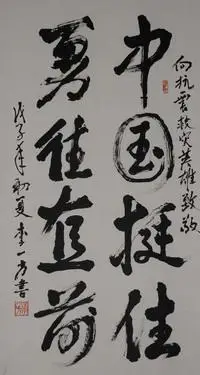 向抗震救灾英雄致敬
中国挺住
勇往直前
戊子年初夏李一方书